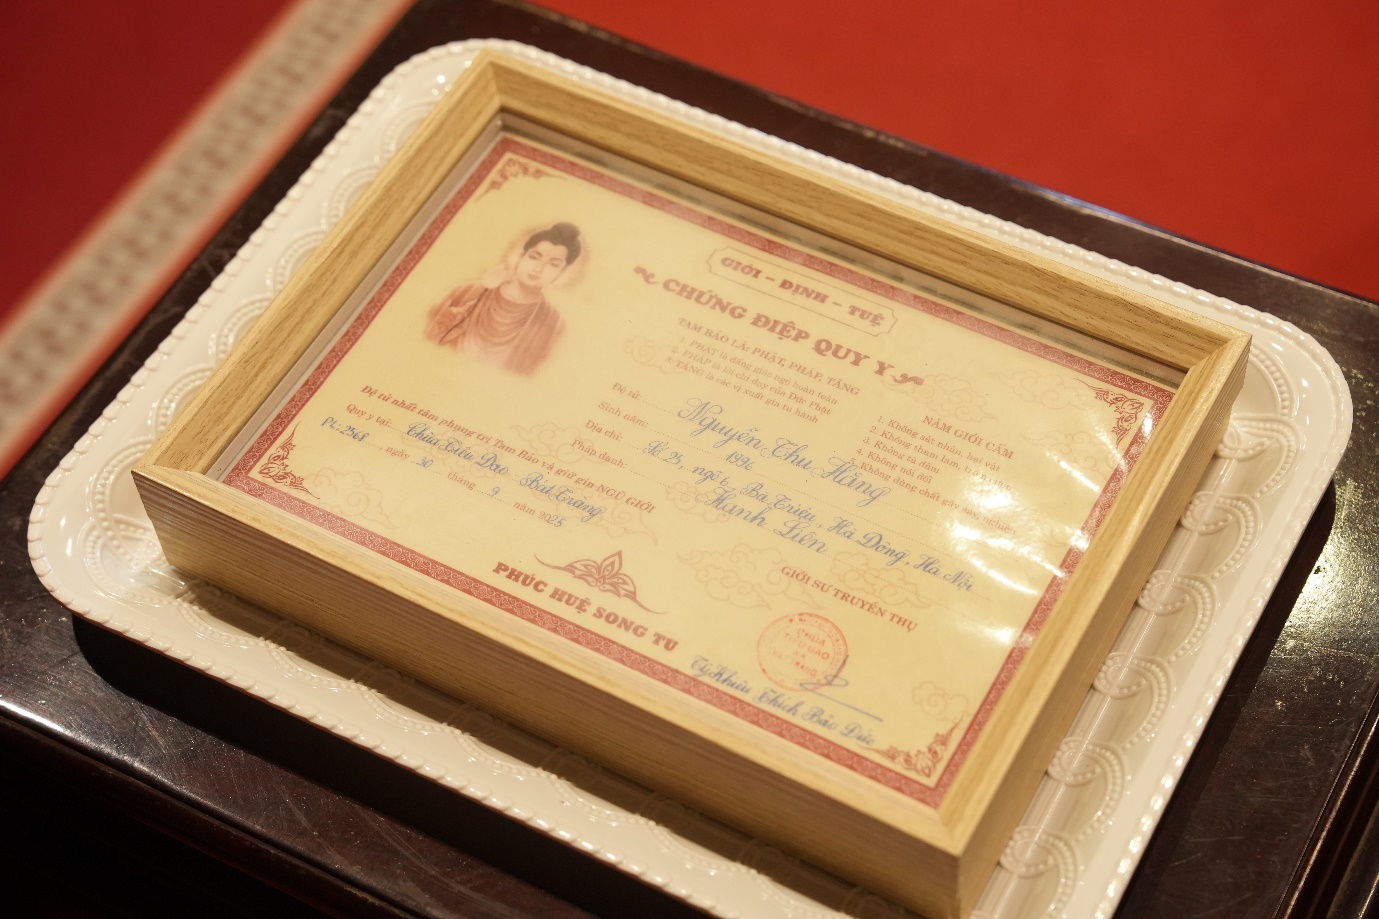 GIỚI - ĐỊNH - TUỆ
CHỨNG ĐIỆP QUY Y
TAM BẢO LÀ: PHẬT, PHÁP, TĂNG
1. PHẬT là đấng giác ngộ hoàn toàn
2. PHÁP là lời chỉ dạy của Đức Phật
3. TĂNG là các vị xuất gia tu hành
NĂM GIỚI CẤM
1. Không sát nhân, hại vật
2. Không tham lam, trộm cắp
3. Không tà dâm
4. Không nói dối
5. Không dùng chất gây say, nghiện
Đệ tử: Nguyễn Thu Hằng
Sinh năm: 1996
Địa chỉ: Số 25, ngõ 6, Bà Triệu, Hà Đông, Hà Nội
Pháp danh: Hạnh Liên
Đệ tử nhất tâm phụng trì Tam Bảo và giữ gìn NGŨ GIỚI
Quy y tại: Chùa Tiêu Dao Bát Tràng
PL: 2568, ngày 30 tháng 9 năm 2025
PHÚC HUỆ SONG TU
GIỚI SƯ TRUYỀN THỤ
CHÙA
Tỳ Khiêu Thích Bảo Đức